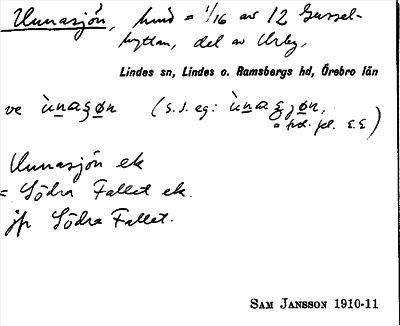 Unnasjön, hmd = 1/16 av 12 Gussel-
hyttan, del av Usby,
Lindes sn, Lindes o. Ramsbergs hd, Örebro län
ve ùnasøn (S.J. eg:
Unnasjön ek
= Södra Fallet ek.
jfr Södra Fallet.
SAM JANSSON 1910-11